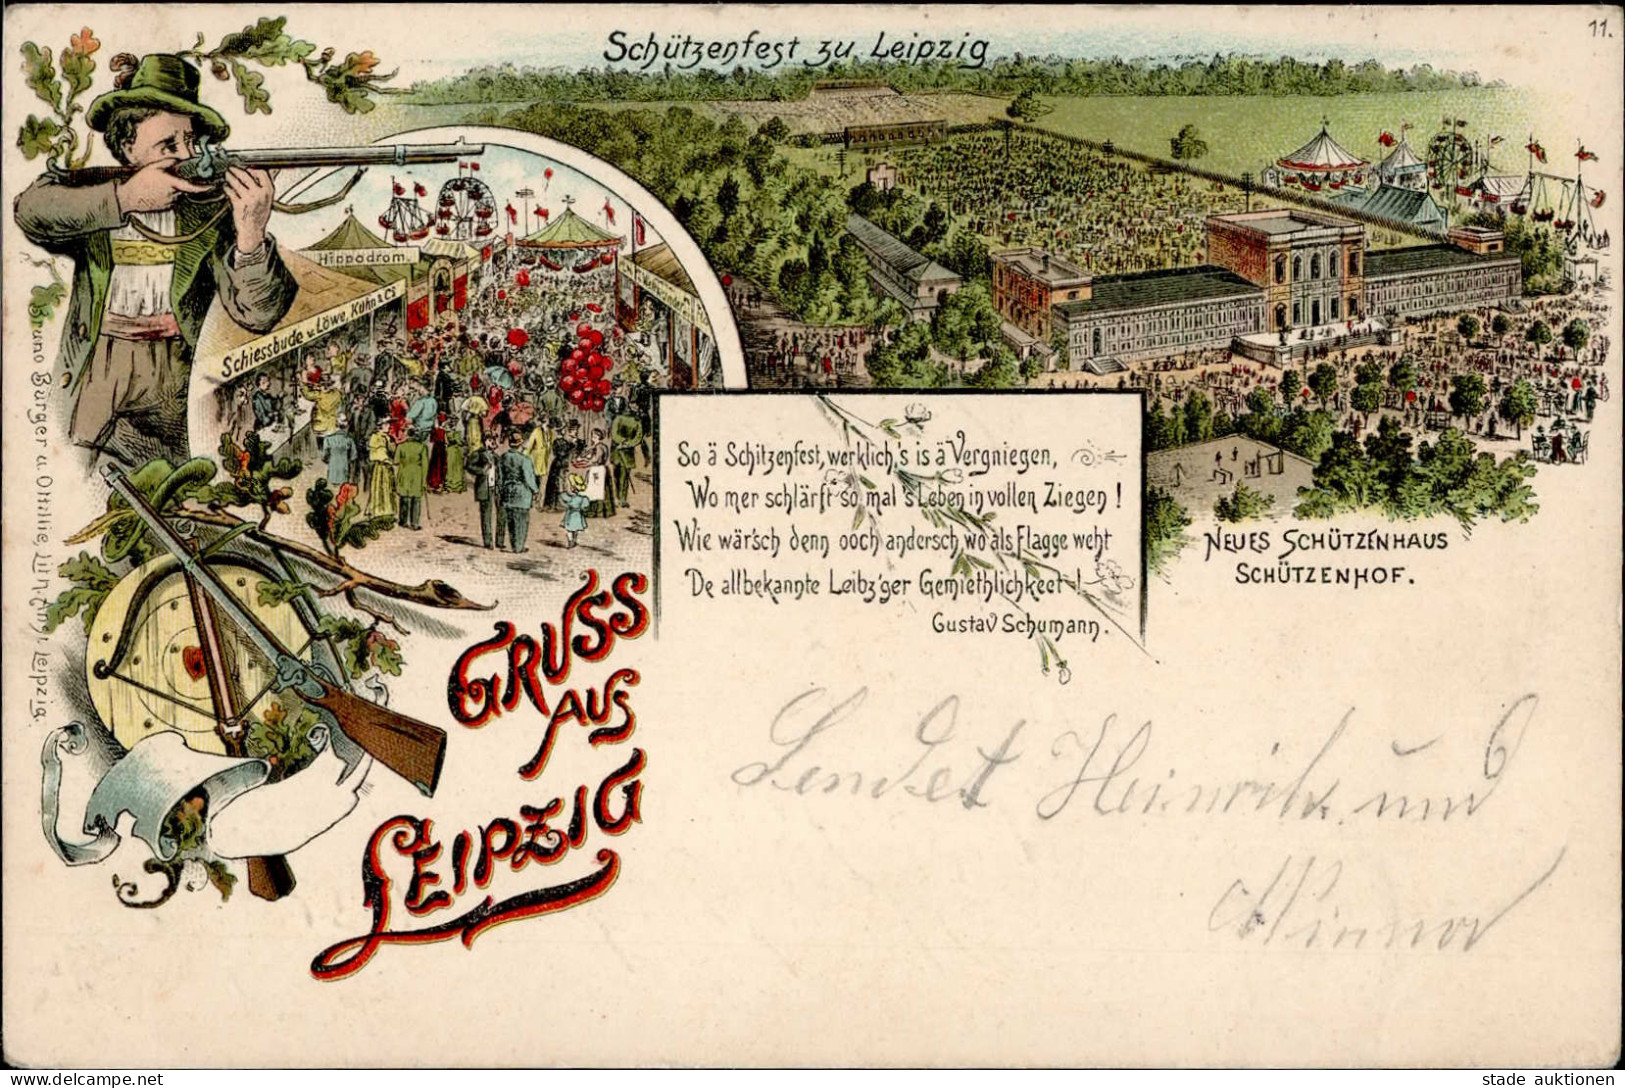 Schützenfest zu Leipzig
11.
Hippodrom.
Schiessbude v. Löwe, Kühn & Co
So ä Schitzenfest, werklich,'s is ä Vergniegen,
Wo mer schlärft so mal 's Leben in vollen Ziegen!
Wie wär'sch denn ooch andersch, wo als Flagge weht
De allbekannte Leibz'ger Gemiethlichkeet!
Gustav Schumann.
NEUES SCHÜTZENHAUS
SCHÜTZENHOF.
GRUSS
AUS
LEIPZIG
Bruno Bürger u. Ottillie, Lith. Anst. Leipzig.
Sendet Heinrich und
delcampe.net
stade auktionen